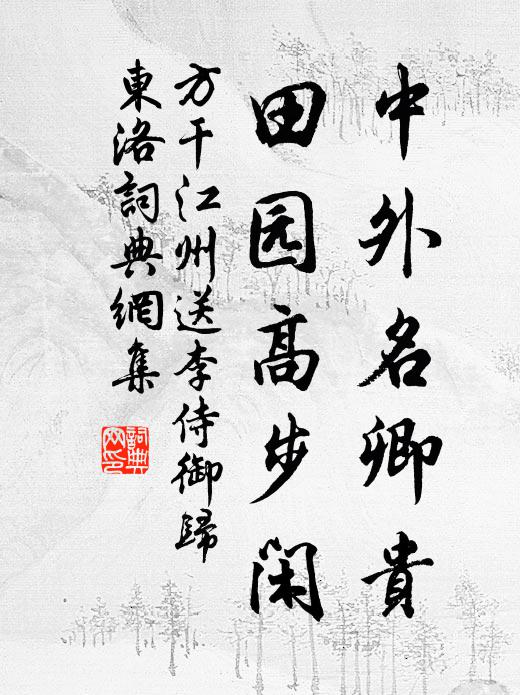 中外名卿貴
田园高步闲
方干江州送李侍御歸
東洛詞典網集
詞典网印